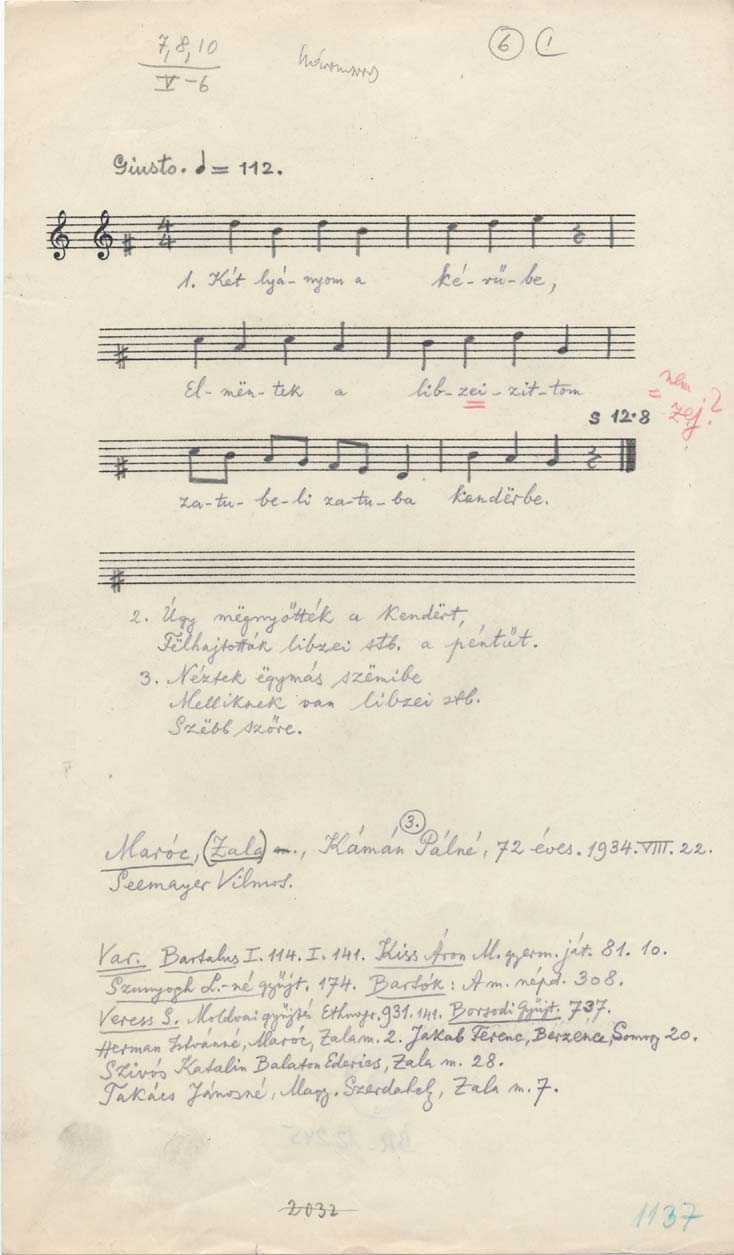 7, 8, 10
V-6
6 1
Giusto. = 112.
4
4
1. Két lyá-nyom a ké-rü-be,
El-mën-tek a lib-zei-zit-tom
= nem zej?
s 12.8
za-tu-be-li za-tu-ba kendërbe.
2. Úgy mëgnyőtték a kendërt,
Fëlhajtották libzei stb. a péntüt.
3. Néztek ëgymás szëmibe
Melliknek van libzei stb.
Szëbb szőre.
3.
Maróc, (Zala) m., Kámán Pálné, 72 éves. 1934. VIII. 22.
Seemayer Vilmos.
Var. Bartalus I. 114. I. 141. Kiss Áron M. gyerm. ját. 81. 10.
Szunyogh L.-né gyűjt. 174. Bartók: A m. népd. 308.
Veress S. Moldvai gyűjtés Ethnogr. 931. 141. Borsodi Gyűjt. 737.
Herman Istvánné, Maróc, Zala m. 2. Jakab Ferenc, Berzence, Somogy 20.
Szivós Katalin Balaton Ederics, Zala m. 28.
Takács Jánosné, Magy. Szerdahely, Zala m. 7.
2032
1137